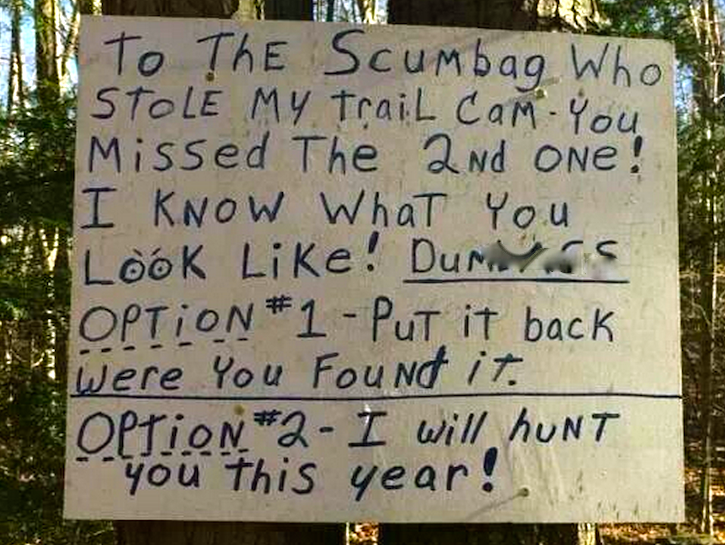 To ThE Scumbag Who
STOLE MY TraiL CaM-You
Missed The 2Nd ONE!
I KNOW WhaT You
LOOK LiKe!
OPTiON #1-PuT iT back
Were You FouNd iT.
OPTiON #2- I will huNT
you this year!